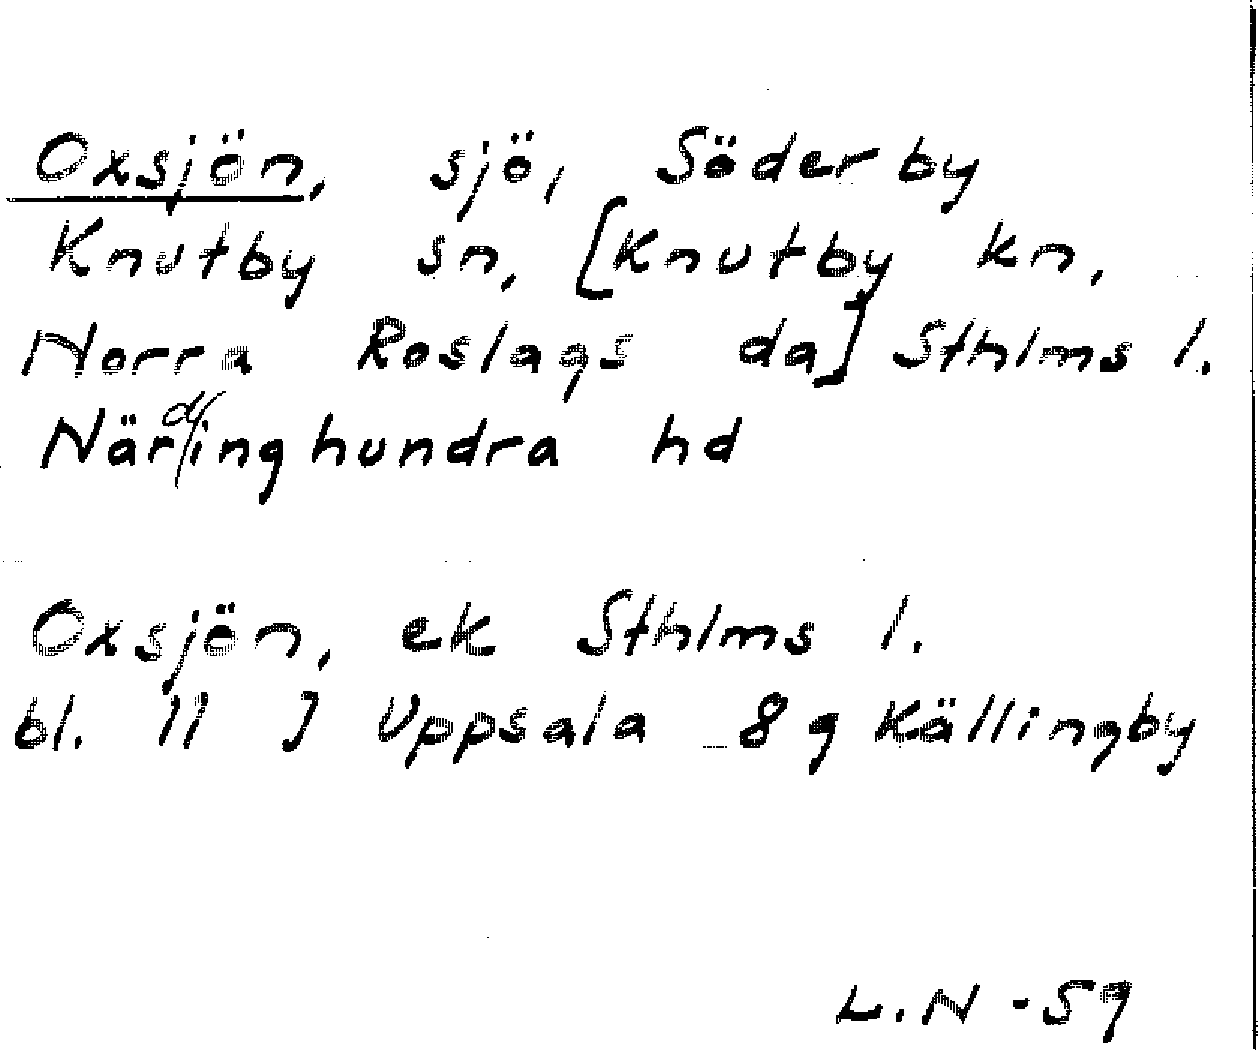 Oxsjön, sjö, Söderby
Knutby sn, [Knutby kn,
Norra Roslags da] Sthlms l.
Närdinghundra hd
Oxsjön, ek Sthlms l.
bl. 11 J Uppsala 8 g Källingby
L.N -59